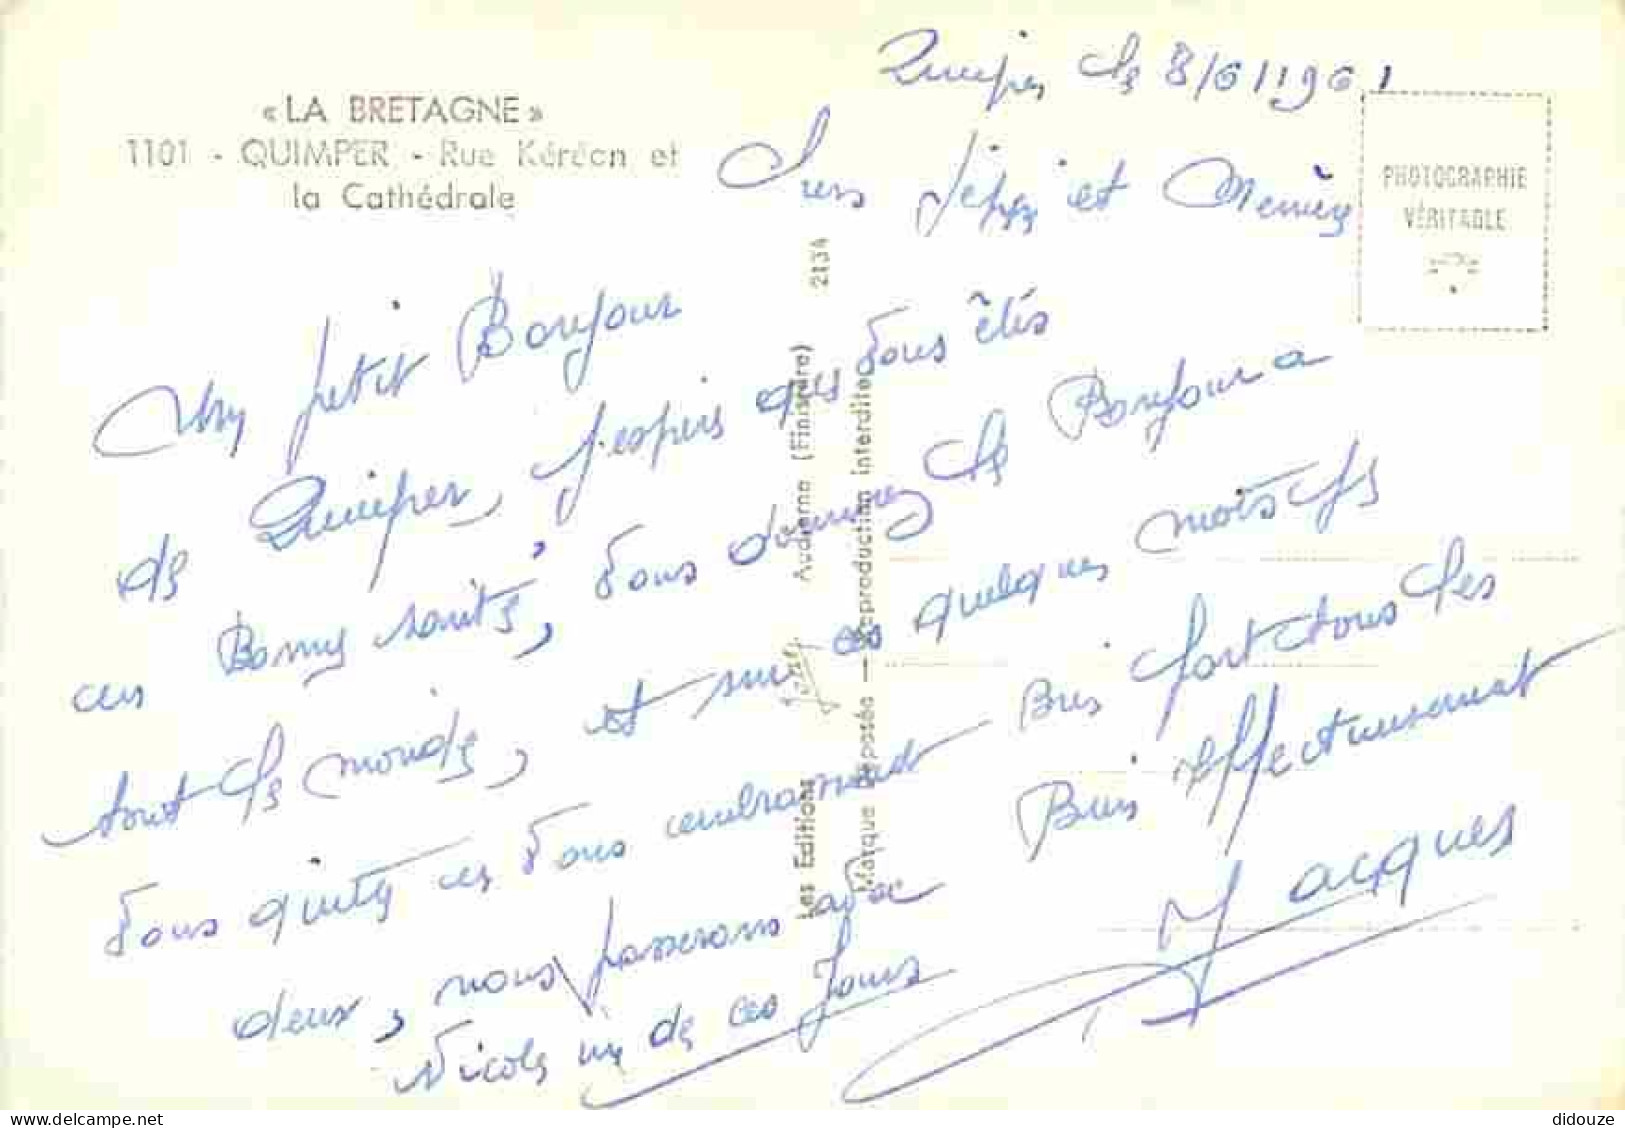 « LA BRETAGNE »
1101 - QUIMPER - Rue Kéréon et
la Cathédrale
Quimper le 8/6/1961
PHOTOGRAPHIE
VÉRITABLE
Chers et
Un petit Bonjour
de Quimper, j'espers que vous êtés
en Bonny santé, vous donnerez le Bonjour a
tout le monde, et sur ces quelques mots je
vous quitte en vous embrassant Bris fort tous les
deux, nous passerons avec
Nicole un de ces Jours
Bien affectueusement
Jacques
Les Editions Jos Audierne (Finistère) 2134
Marque déposée — Reproduction interdite
delcampe.net
didouze